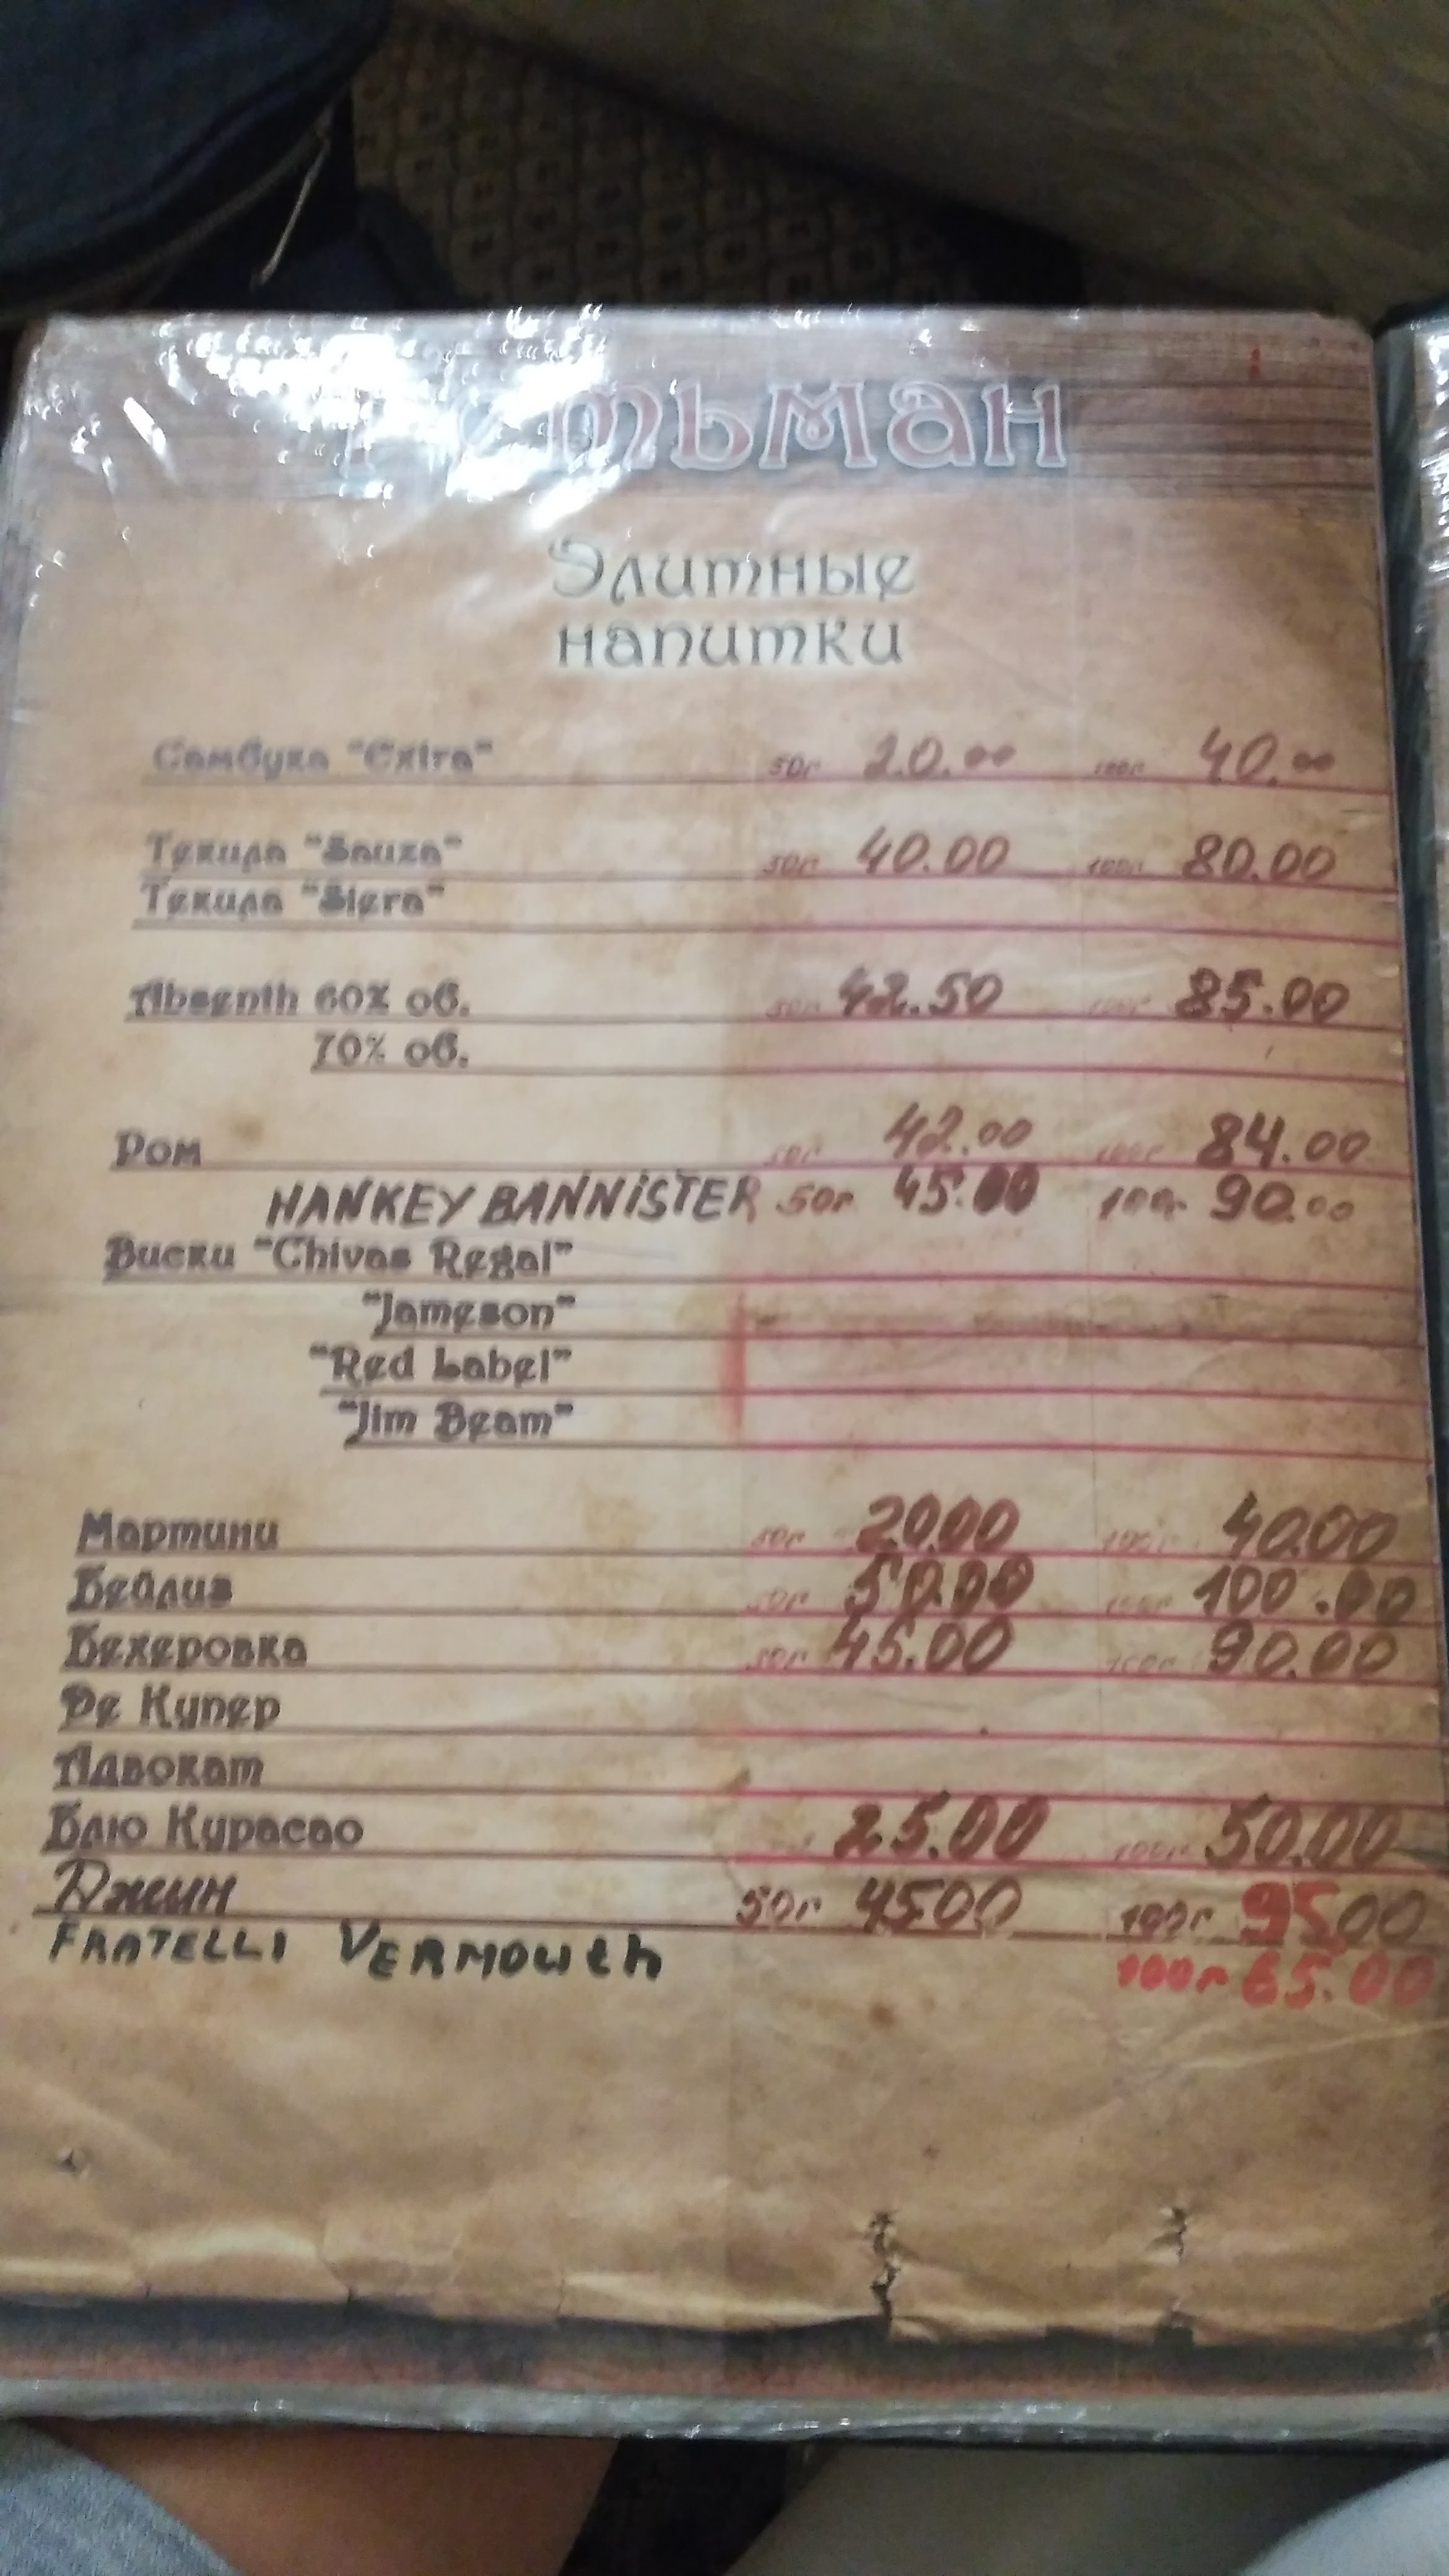 Элитные
напитки
Самбука "Extra" 50г 20.00 100г 40.00
Текила "Sauza" 50г 40.00 100г 80.00
Текила "Siera"
Absenth 60% об. 50г 42.50 100г 85.00
70% об.
Ром 50г 42.00 100г 84.00
HANKEY BANNISTER 50г 45.00 100г 90.00
Виски "Chivas Regal"
"Jameson"
"Red Label"
"Jim Beam"
Мартини 50г 20.00 100г 40.00
Бейлиз 50г 50.00 100г 100.00
Бехеровка 50г 45.00 100г 90.00
Де Купер
Адвокат
Блю Курасао 25.00 100г 50.00
Джин 50г 45.00 100г 95.00
FRATELLI VERMOUTH
100г 65.00